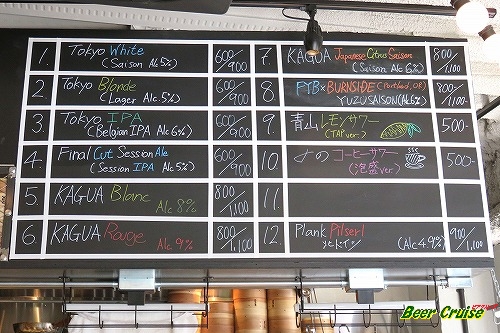 1. Tokyo White (Saison Alc 5%) 600/900
2. Tokyo Blonde (Lager Alc. 5%) 600/900
3. Tokyo IPA (Belgian IPA Alc 6%) 600/900
4. Final Cut Session Ale (Session IPA Alc 5%) 600/900
5. KAGUA Blanc Alc 8% 800/1,100
6. KAGUA Rouge Alc 9% 800/1,100
7. KAGUA Japanese Citrus Saison (Saison Alc 6%) 800/1,100
8. FTB×BURNSIDE (Portland, OR) YUZU SAISON (AL6%) 800/1,100
9. 青山レモンサワー (TAP ver) 500-
10. のコーヒーサワー (泡盛ver.) 500-
11.
12. Plank Pilserl (Alc 4.9%) 900/1,100
Beer Cruise